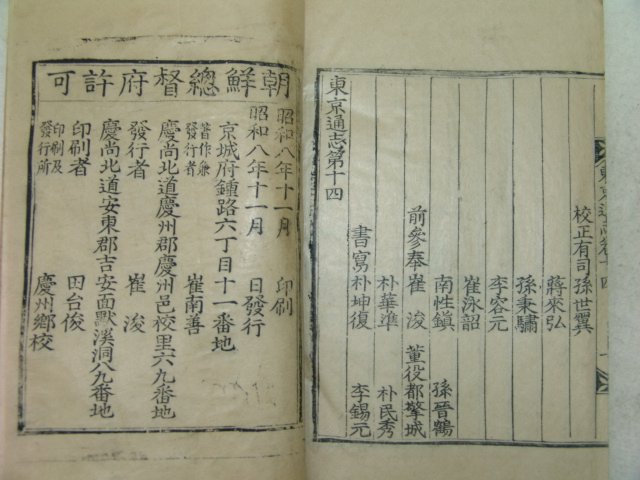 校正有司 孫世翼
蔣來弘
孫秉驌
李容元
崔泳詔
南性鎮 孫晉鶴
前參奉 崔浚 董役都擎城
朴華準 朴民秀
書寫 朴坤復 李錫元
東京通志第十四
朝鮮總督府許可
昭和八年十一月 印刷
昭和八年十一月 日發行
京城府鍾路六丁目十一番地
著作兼發行者 崔南善
慶尚北道慶州郡慶州邑校里六九番地
發行者 崔浚
慶尚北道安東郡吉安面默溪洞八九番地
印刷者 田台俊
印刷及發行所 慶州鄉校